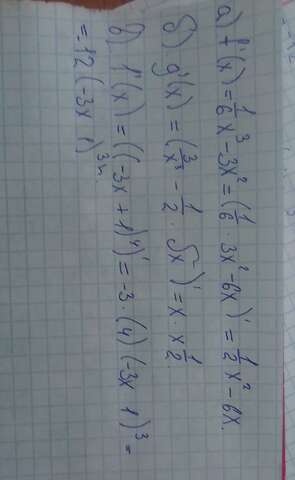 а) f'(x) = 1/6 x³ - 3x² = (1/6 · 3x² - 6x)' = 1/2 x² - 6x.
б) g'(x) = (3/x³ - 1/2 · 5x)' = x · x 1/2.
в) f'(x) = ((-3x + 1)⁴)' = -3 · (4) (-3x 1)³ =
= 12 (-3x 1)³